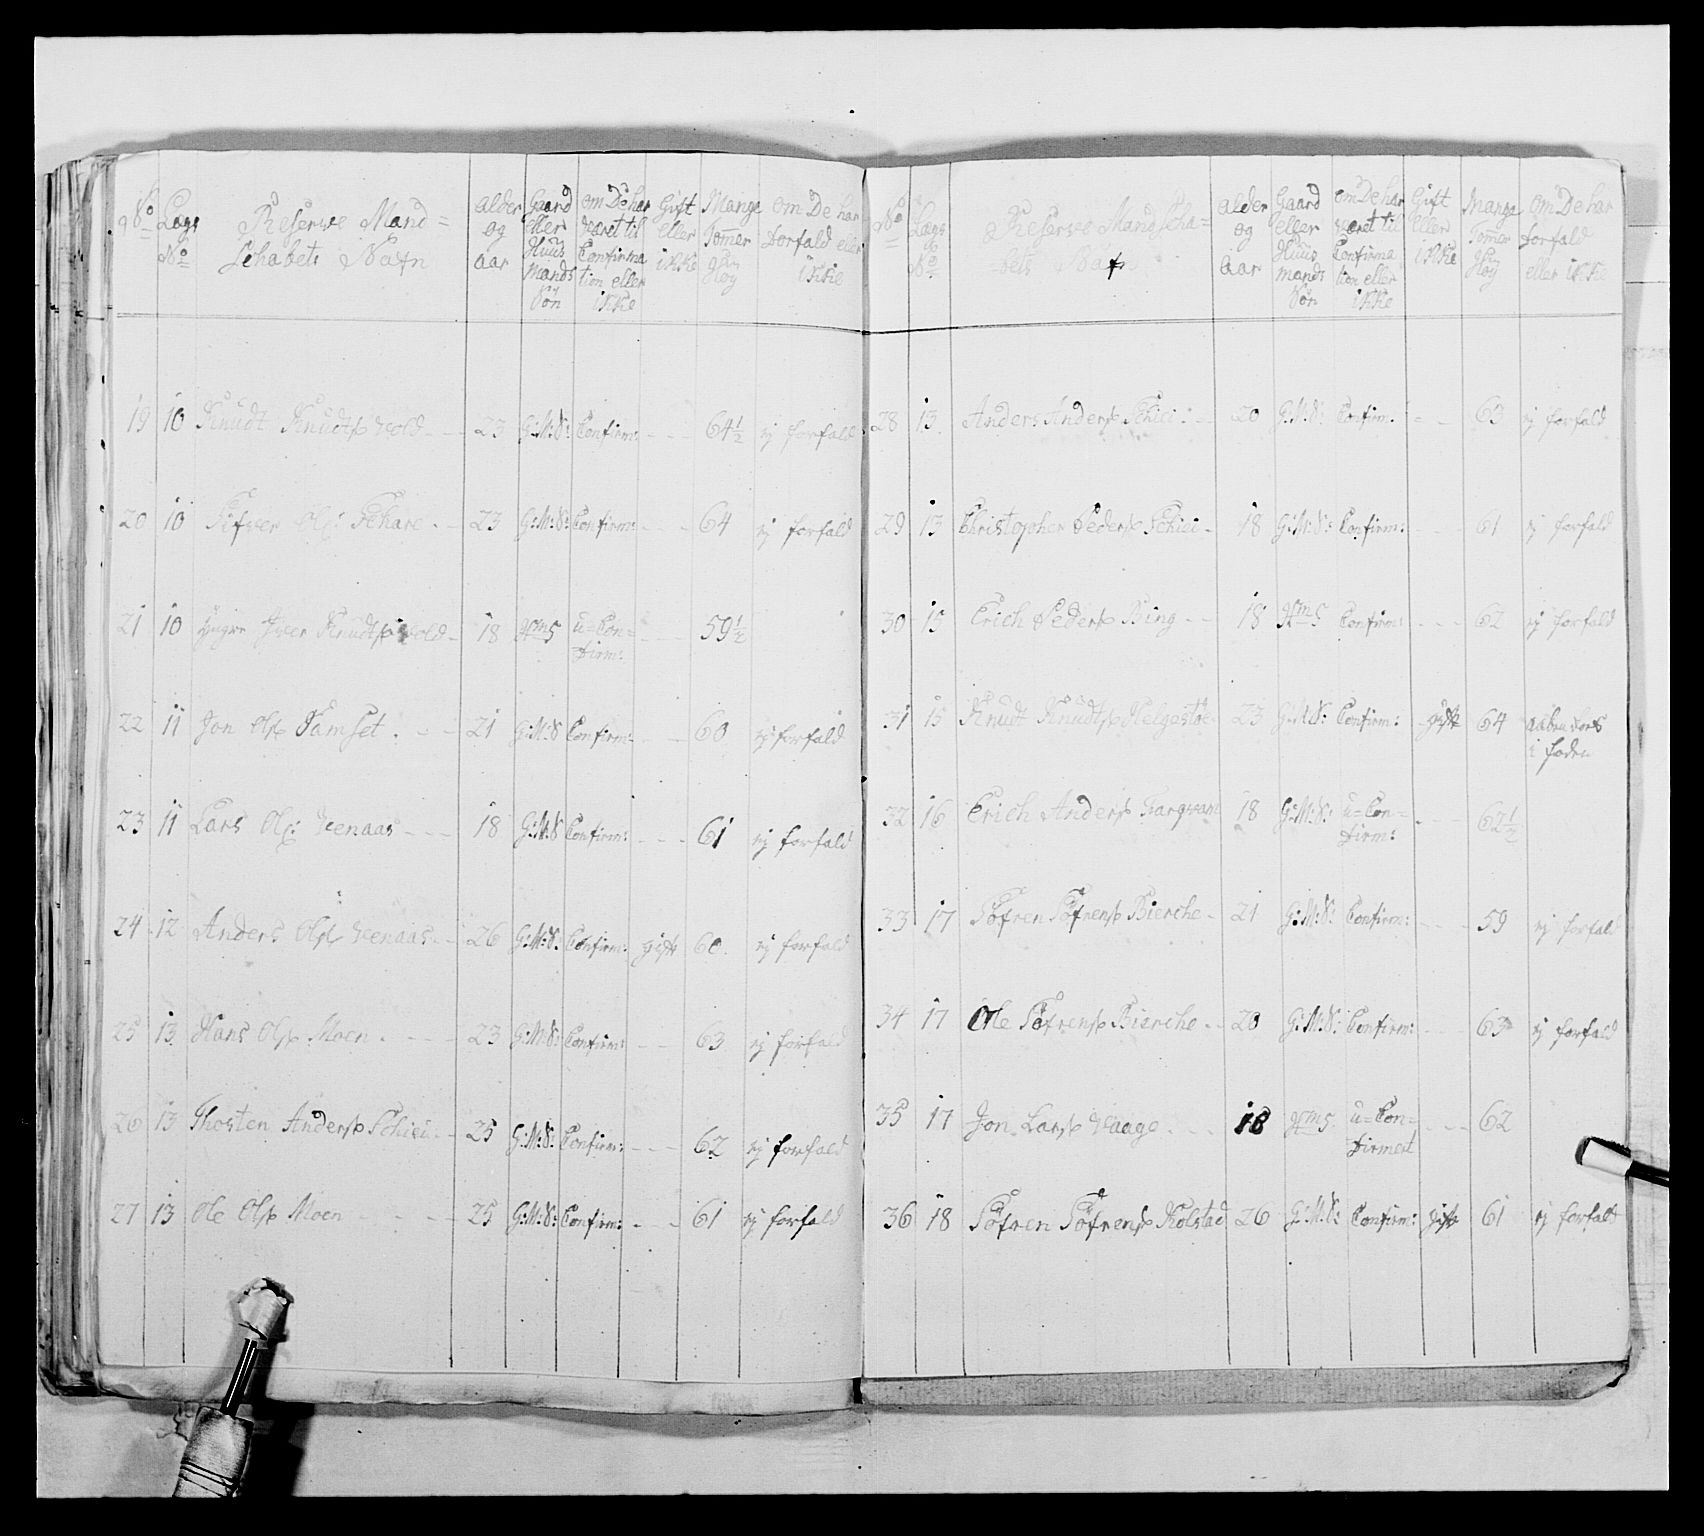 No Lægs No Reserve Mand= Schabets Nafn alder og aar Gaard eller Huus mands Søn om De har været til Confirmation eller ikke Gift eller ikke Mange Tommer Høy om De har forfald eller ikke
19 10 Knudt Knudtss Vold 23 G:M:S: Confirm: 64½ ej forfald
20 10 Sifver Ols: Schare 23 G:M:S: Confirm: 64 ej forfald
21 10 yngre Iver Knudtss Vold 18 HmS u=Con=
firm: 59½
22 11 Jon Olss Samset 21 G:M:S Confirm: 60 ej forfald
23 11 Lars Ols: Venaas 18 G:M:S Confirm: 61 ej forfald
24 12 Anders Olss Venaas 26 G:M:S: Confirm: gift 60 ej forfald
25 13 Hans Olss Moen 23 G:M:S: Confirm: 63 ej forfald
26 13 Thosten Anderss Schiei 25 G:M:S: Confirm: 62 ej forfald
27 13 Ole Olss Moen 25 G:M:S: Confirm: 61 ej forfald
No Lægs No Reserve Mandscha= bets Nafn alder og aar Gaard eller Huus mands Søn om De har været til Confirmation eller ikke Gift eller ikke Mange Tommer Høy om De har forfald eller ikke
28 13 Anders Anderss Schiei 20 G:M:S: Confirm. 63 ej forfald
29 13 Christopher Pederss Schiei 18 G:M:S: Confirm: 61 ej forfald
30 15 Erich Pederss Bing 18 HmS Confirm: 62 ej forfald
31 15 Knudt Knudtss Helgestøe 23 G:M:S: Confirm: gift 64 aaben
i foden
32 16 Erich Anderss 18 G:M:S: u=Con=
firm: 62½
33 17 Søfren Søfrenss Bierche 21 G:M:S: Confirm: 59 ej forfald
34 17 Ole Søfrenss Bierche 20 G:M:S: Confirm: 63 ej forfald
35 17 Jon Larss Vaage 18 HmS u=Con=
firmert 62
36 18 Søfren Søfrenss Kolstad 26 G:M:S: Confirm: gift 61 ej forfald